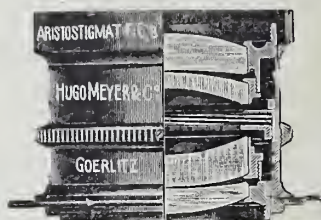 ARISTOSTIGMAT
HUGO MEYER & Cº
GOERLITZ